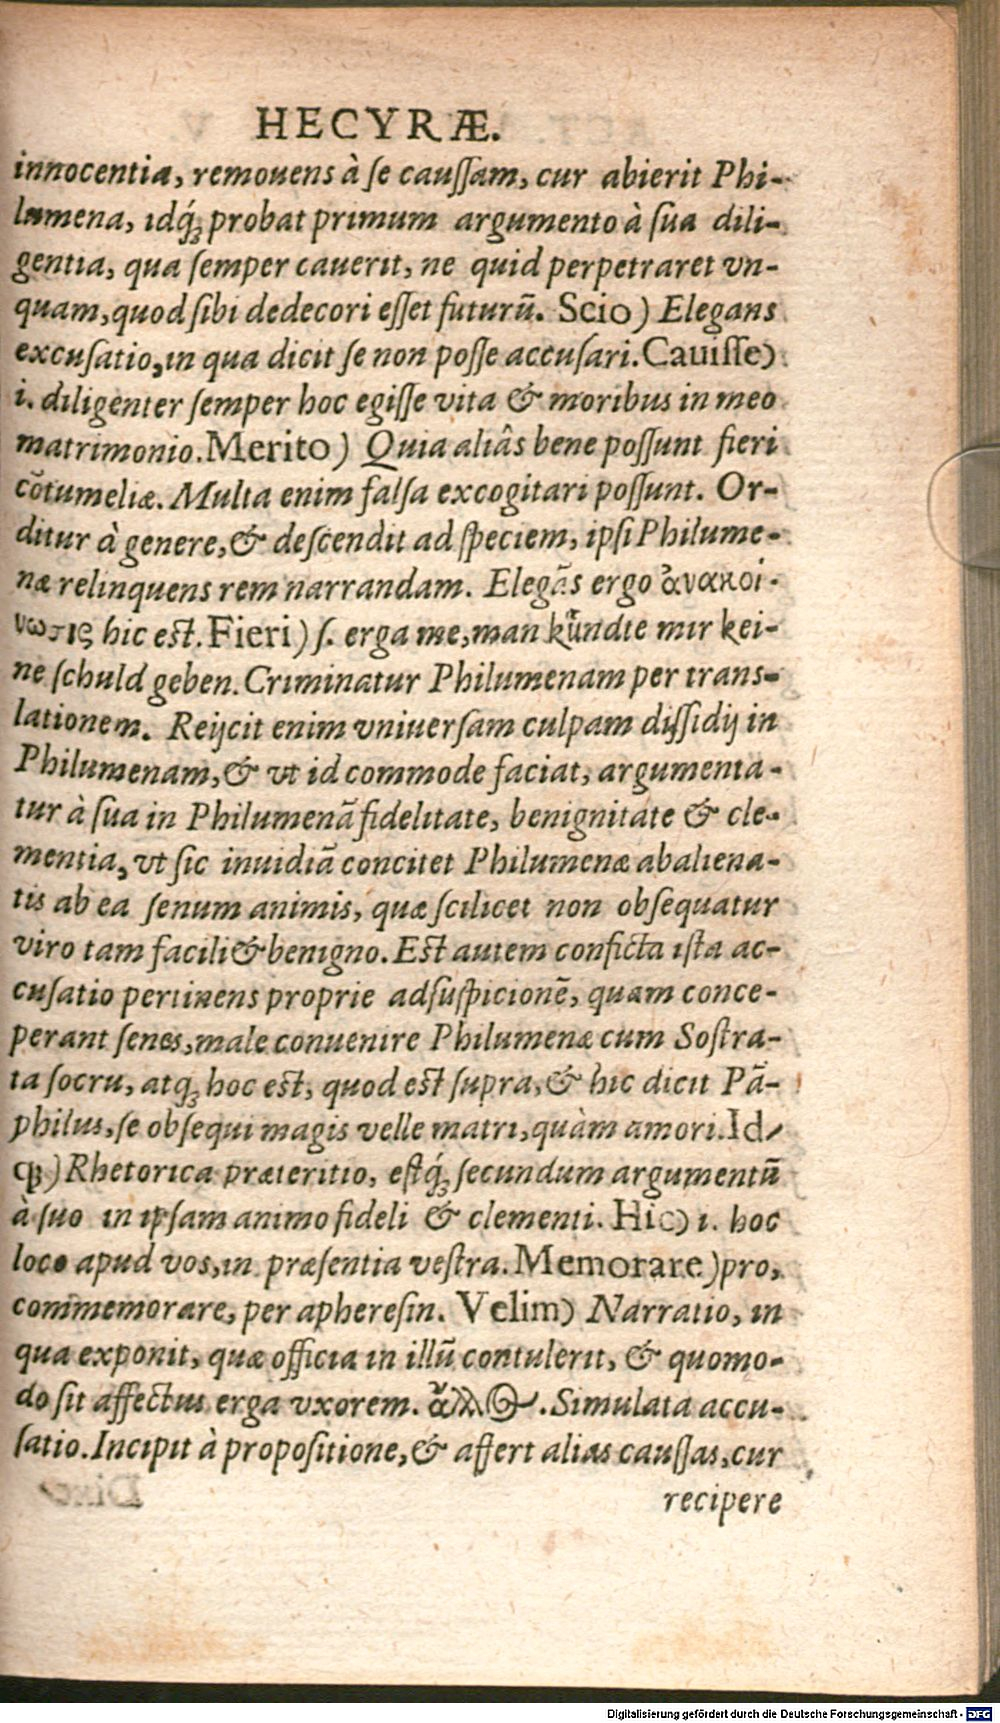 HECYRÆ.
innocentia, remouens à ſe cauſſam, cur abierit Phi-
lumena, idq́ꝫ probat primum argumento à ſua dili-
gentia, qua ſemper cauerit, ne quid perpetraret vn-
quam, quod ſibi dedecori eſſet futurũ. Scio) Elegans
excuſatio, in qua dicit ſe non poſſe accuſari. Cauiſſe)
i. diligenter ſemper hoc egiſſe vita & moribus in meo
matrimonio. Merito) Quia aliâs bene poſſunt fieri
cõtumeliæ. Multa enim falſa excogitari poſſunt. Or-
ditur à genere, & deſcendit ad ſpeciem, ipſi Philume-
næ relinquens rem narrandam. Elegãs ergo ἀνακοί-
νωσις hic est. Fieri) ſ. erga me, man kůndte mir kei-
ne ſchuld geben. Criminatur Philumenam per trans-
lationem. Reijcit enim vniuerſam culpam diſſidij in
Philumenam, & vt id commode faciat, argumenta-
tur à ſua in Philumenã fidelitate, benignitate & cle-
mentia, vt ſic inuidiã concitet Philumenæ abaliena-
tis ab ea ſenum animis, quæ ſcilicet non obſequatur
viro tam facili & benigno. Est autem conficta iſta ac-
cuſatio pertinens proprie ad ſuſpicionẽ, quam conce-
perant ſenes, male conuenire Philumenæ cum Soſtra-
ta ſocru, atqꝫ hoc est, quod est ſupra, & hic dicit Pã-
philus, ſe obſequi magis velle matri, quàm amori. Id-
qꝫ) Rhetorica præteritio, eſtq́ꝫ ſecundum argumentũ
à ſuo in ipſam animo fideli & clementi. Hic) i. hoc
loco apud vos, in præſentia veſtra. Memorare) pro,
commemorare, per apheresin. Velim) Narratio, in
qua exponit, quæ officia in illũ contulerit, & quomo-
do ſit affectus erga vxorem. ἄλλως. Simulata accu-
ſatio. Incipit à propoſitione, & affert alias cauſſas, cur
recipere
Digitalisierung gefördert durch die Deutsche Forschungsgemeinschaft - DFG